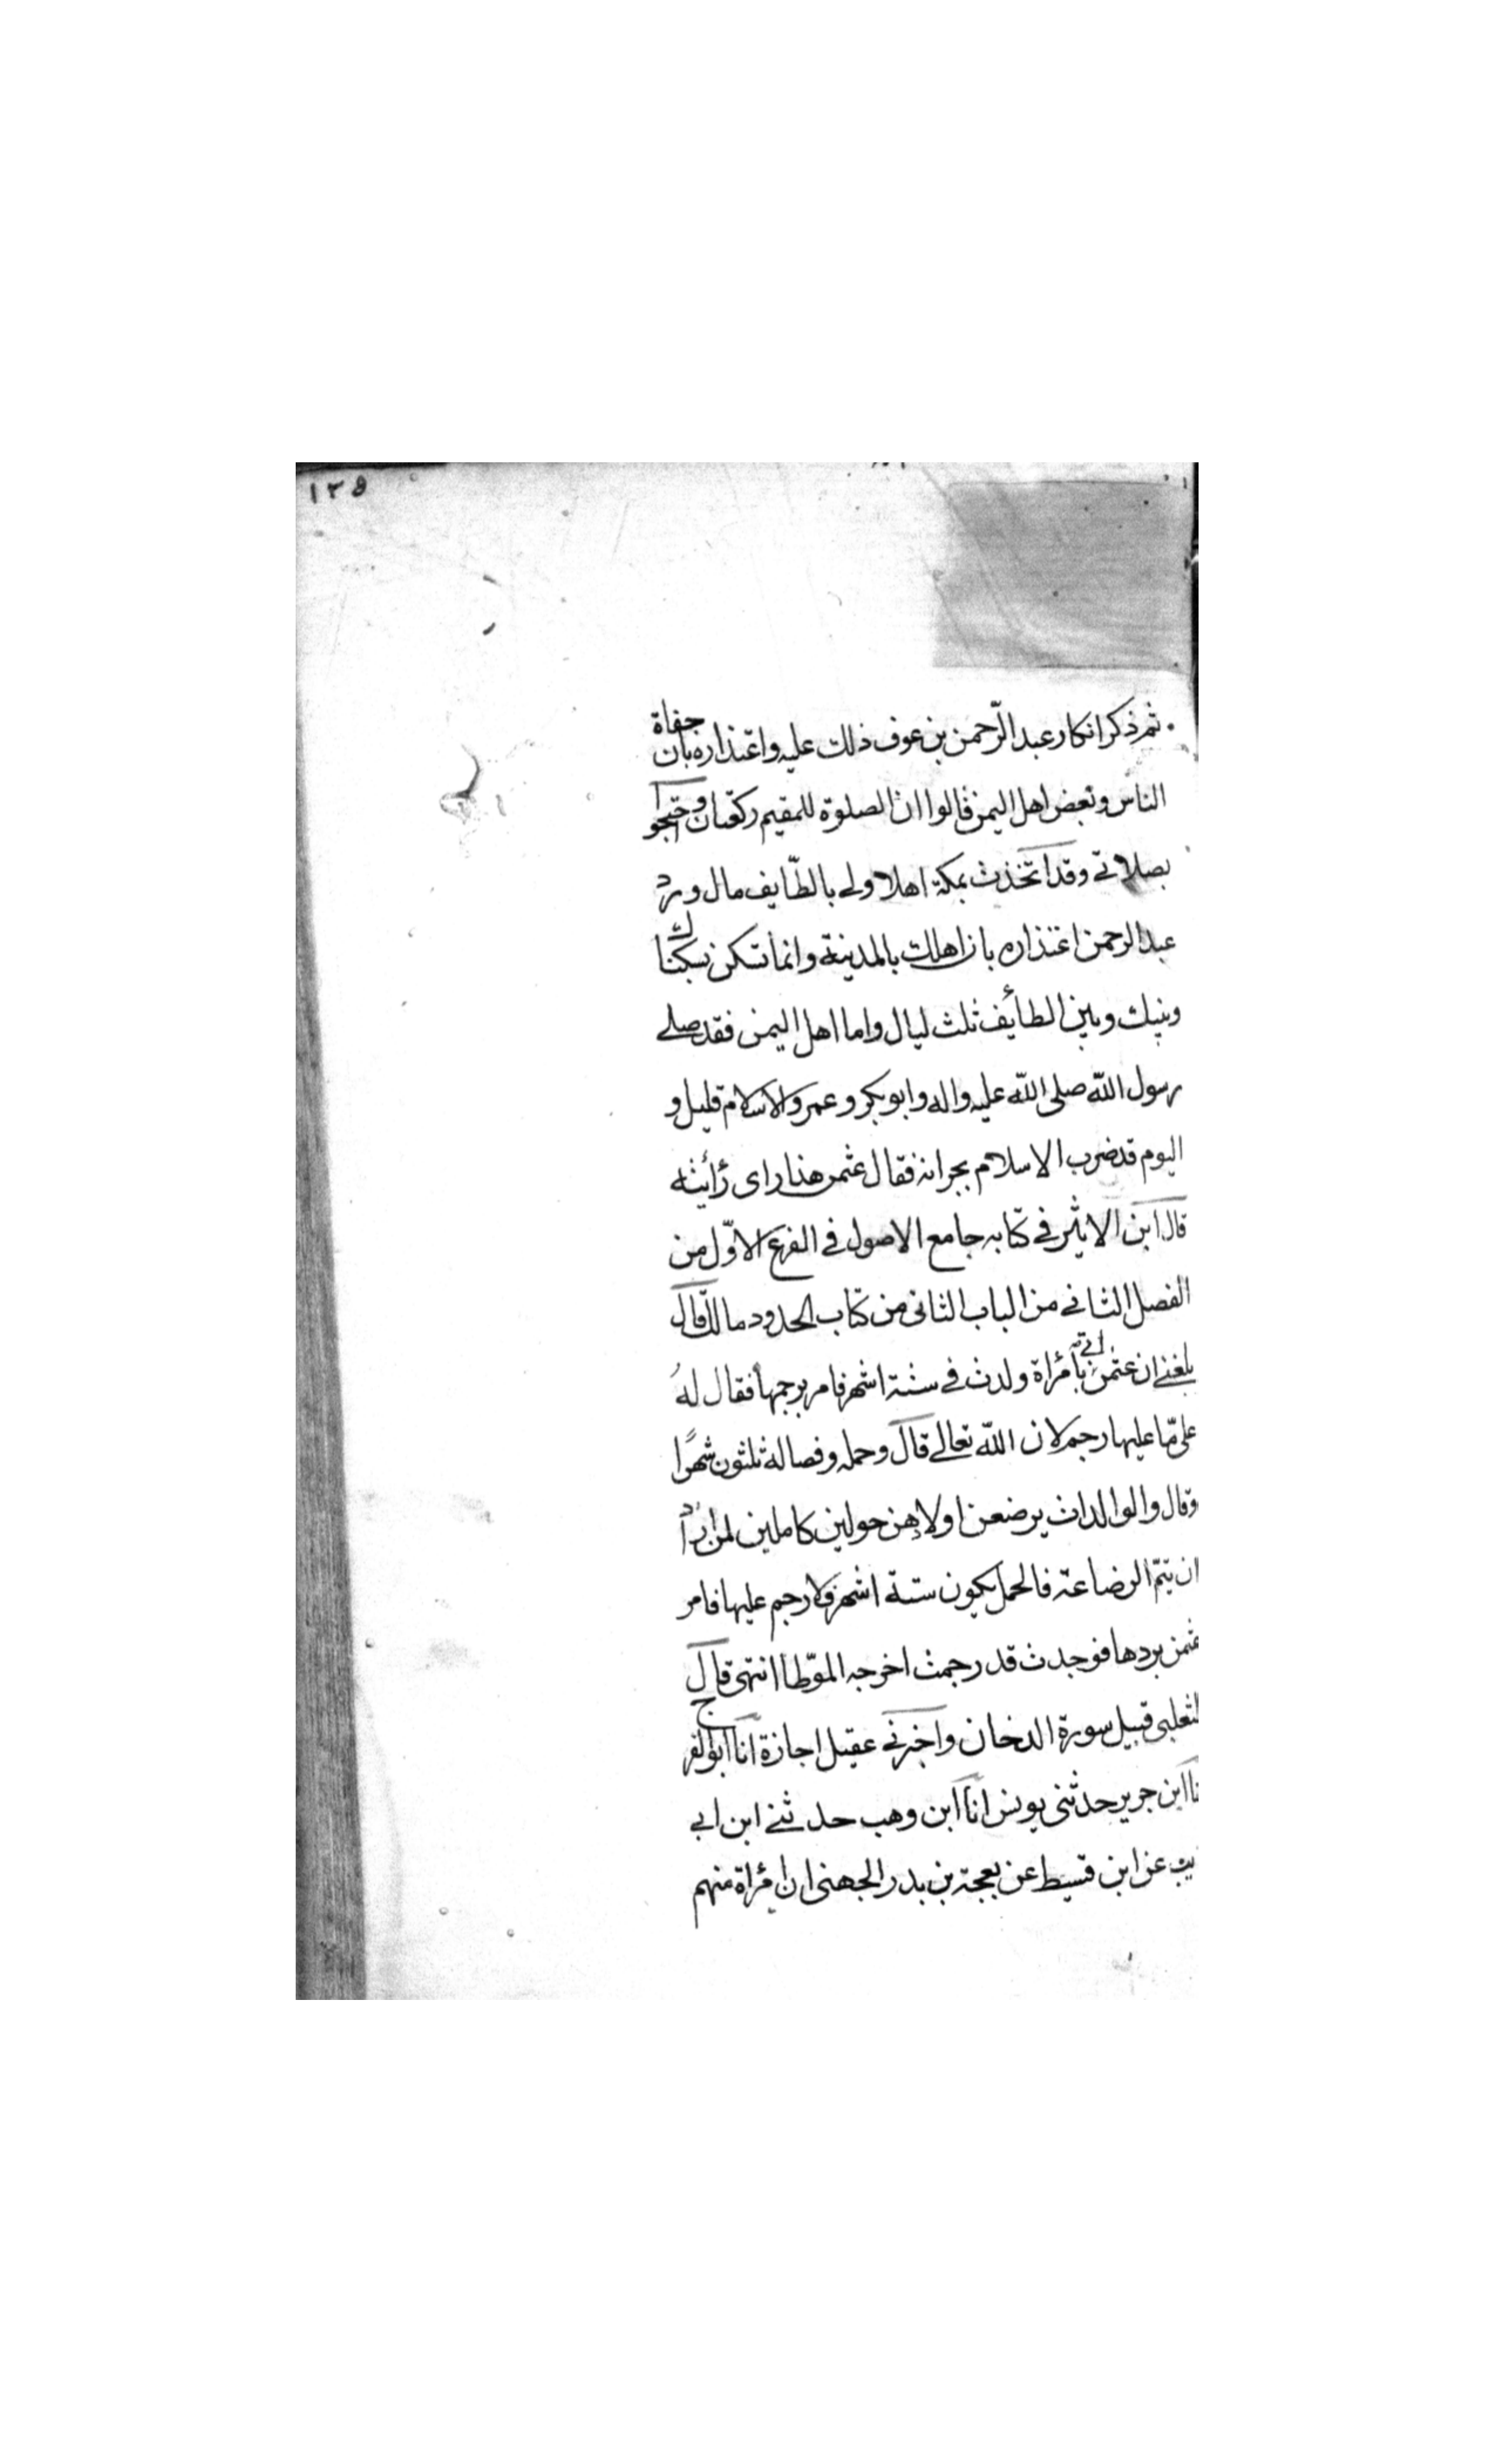 ١٣٥
ثم ذكر انكار عبد الرّحمن بن عوف ذلك عليه واعتذاره بان جفاة
الناس وبعض اهل اليمن قالوا ان الصلوة للمقيم ركعتان واحتجوا
بصلاتي وقد اتخذت بمكة اهلا ولي بالطّايف مال ورد
عبد الرحمن اعتذاره بان اهلك بالمدينة وانما تسكن بسكناك
وبينك وبين الطائف ثلث ليال واما اهل اليمن فقد صلى
رسول الله صلى الله عليه واله وابو بكر وعمر والاسلام قليل و
اليوم قد ضرب الاسلام بجرانه فقال عثمن هذا راى رأيته
قال ابن الاثير في كتابه جامع الاصول في الفرع الاوّل من
الفصل الثاني من الباب الثاني من كتاب الحدود مالك قال
بلغني ان عثمن اتى بامرأة ولدت في ستة اشهر فامر برجمها فقال له
على مّا عليها رجم لان الله تعالى قال وحمله وفصاله ثلثون شهرًا
وقال والوالدات يرضعن اولادهن حولين كاملين لمن اراد
ان يتمّ الرضاعة فالحمل يكون ستة اشهر فلا رجم عليها فامر
عثمن بردها فوجدت قد رجمت اخرجه الموطّا انتهى قال
الثعلبي قبيل سورة الدخان واخبرني عقيل اجازة انا ابو الفرج
نا ابن جرير حدثني يونس انا ابن وهب حدثني ابن ابي
ذيب عن ابن قسيط عن بعجة بن بدر الجهني ان امرأة منهم